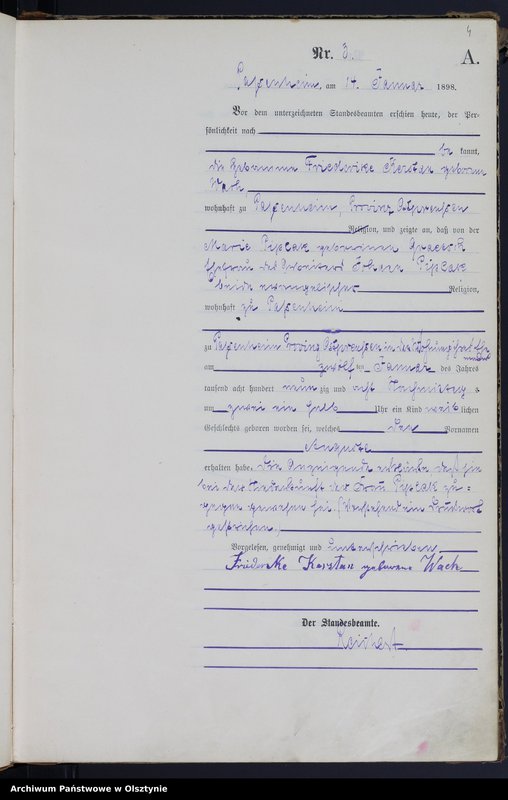 4
Nr. 3.
A.
Passenheim, am 14. Januar 1898.
Vor dem unterzeichneten Standesbeamten erschien heute, der Per-
sönlichkeit nach
be kannt,
die Hebamme Friederike Karstan geborene
Wach
wohnhaft zu Passenheim, Provinz Ostpreußen
Religion, und zeigte an, daß von der
Marie geborenen
Ehefrau des Johann
beide evangelischer Religion,
wohnhaft zu Passenheim
zu Passenheim Provinz Ostpreußen in der Wohnung
am zwölften Januar des Jahres
tausend acht hundert neun zig und acht Nachmittag s
um zwei ein halb Uhr ein Kind weib lichen
Geschlechts geboren worden sei, welches den Vornamen
Auguste
erhalten habe. Die Anzeigende erklärte daß sie
bei der Niederkunft der Frau zu-
gegen gewesen sei. (Vorstehend ein Druckwort
gestrichen.)
Vorgelesen, genehmigt und unterschrieben
Friederike Karstan geborene Wach
Der Standesbeamte.
Archiwum Państwowe w Olsztynie